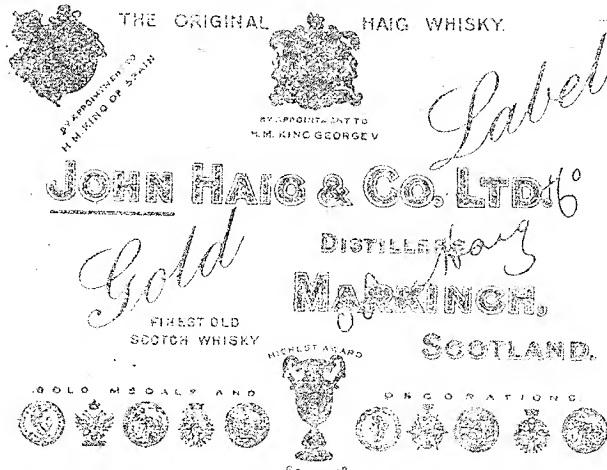 THE ORIGINAL HAIG WHISKY.
BY APPOINTMENT TO
H.M. KING OF SPAIN
BY APPOINTMENT TO
H.M. KING GEORGE V
Label
JOHN HAIG & CO. LTD.
Gold
DISTILLERS
Haig
MARKINCH,
FINEST OLD
SCOTCH WHISKY
SCOTLAND.
HIGHEST AWARD
GOLD MEDALS AND
DECORATIONS.